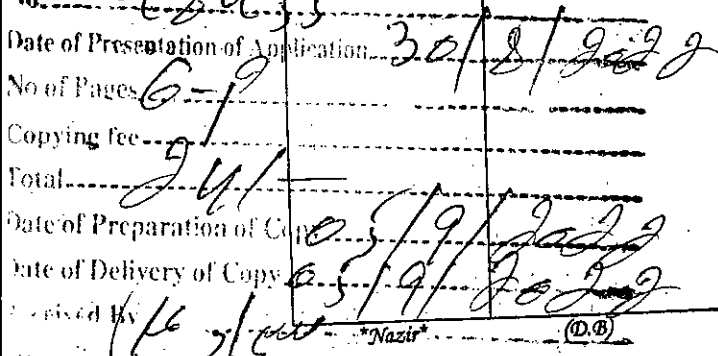 Date of Presentation of Application 30/8/2022
No of Pages 6-P
Copying fee
Total 24/-
Date of Preparation of Copy 05/9/2022
Date of Delivery of Copy 05/9/2022
By
*Nazir* (D.B)